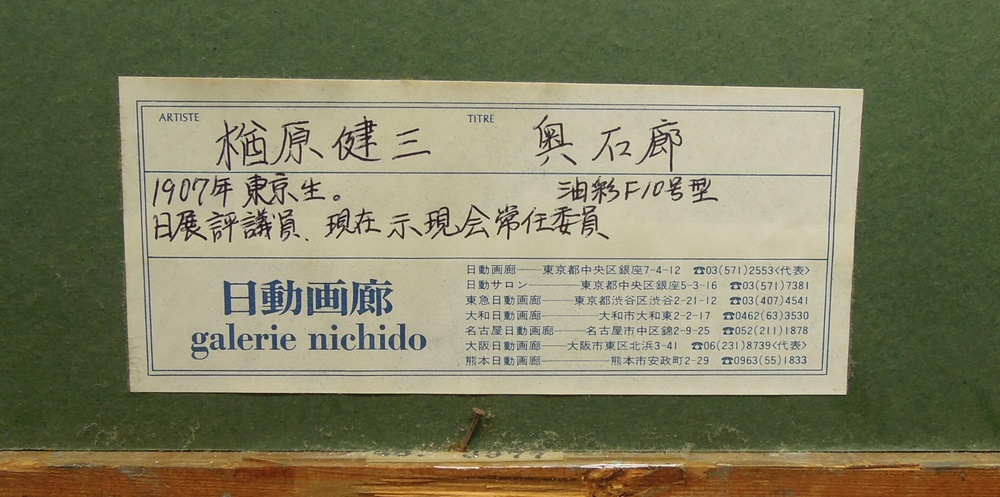 ARTISTE 楢原健三 TITRE 奥石廊
1907年東京生。 油彩F10号型
日展評議員、現在 示現会常任委員
日動画廊
galerie nichido
日動画廊——東京都中央区銀座7-4-12 ☎03(571)2553<代表>
日動サロン————東京都中央区銀座5-3-16 ☎03(571)7381
東急日動画廊———東京都渋谷区渋谷2-21-12 ☎03(407)4541
大和日動画廊————大和市大和東2-2-17 ☎0462(63)3530
名古屋日動画廊———名古屋市中区錦2-9-25 ☎052(211)1878
大阪日動画廊——大阪市東区北浜3-41 ☎06(231)8739<代表>
熊本日動画廊——————熊本市安政町2-29 ☎0963(55)1833